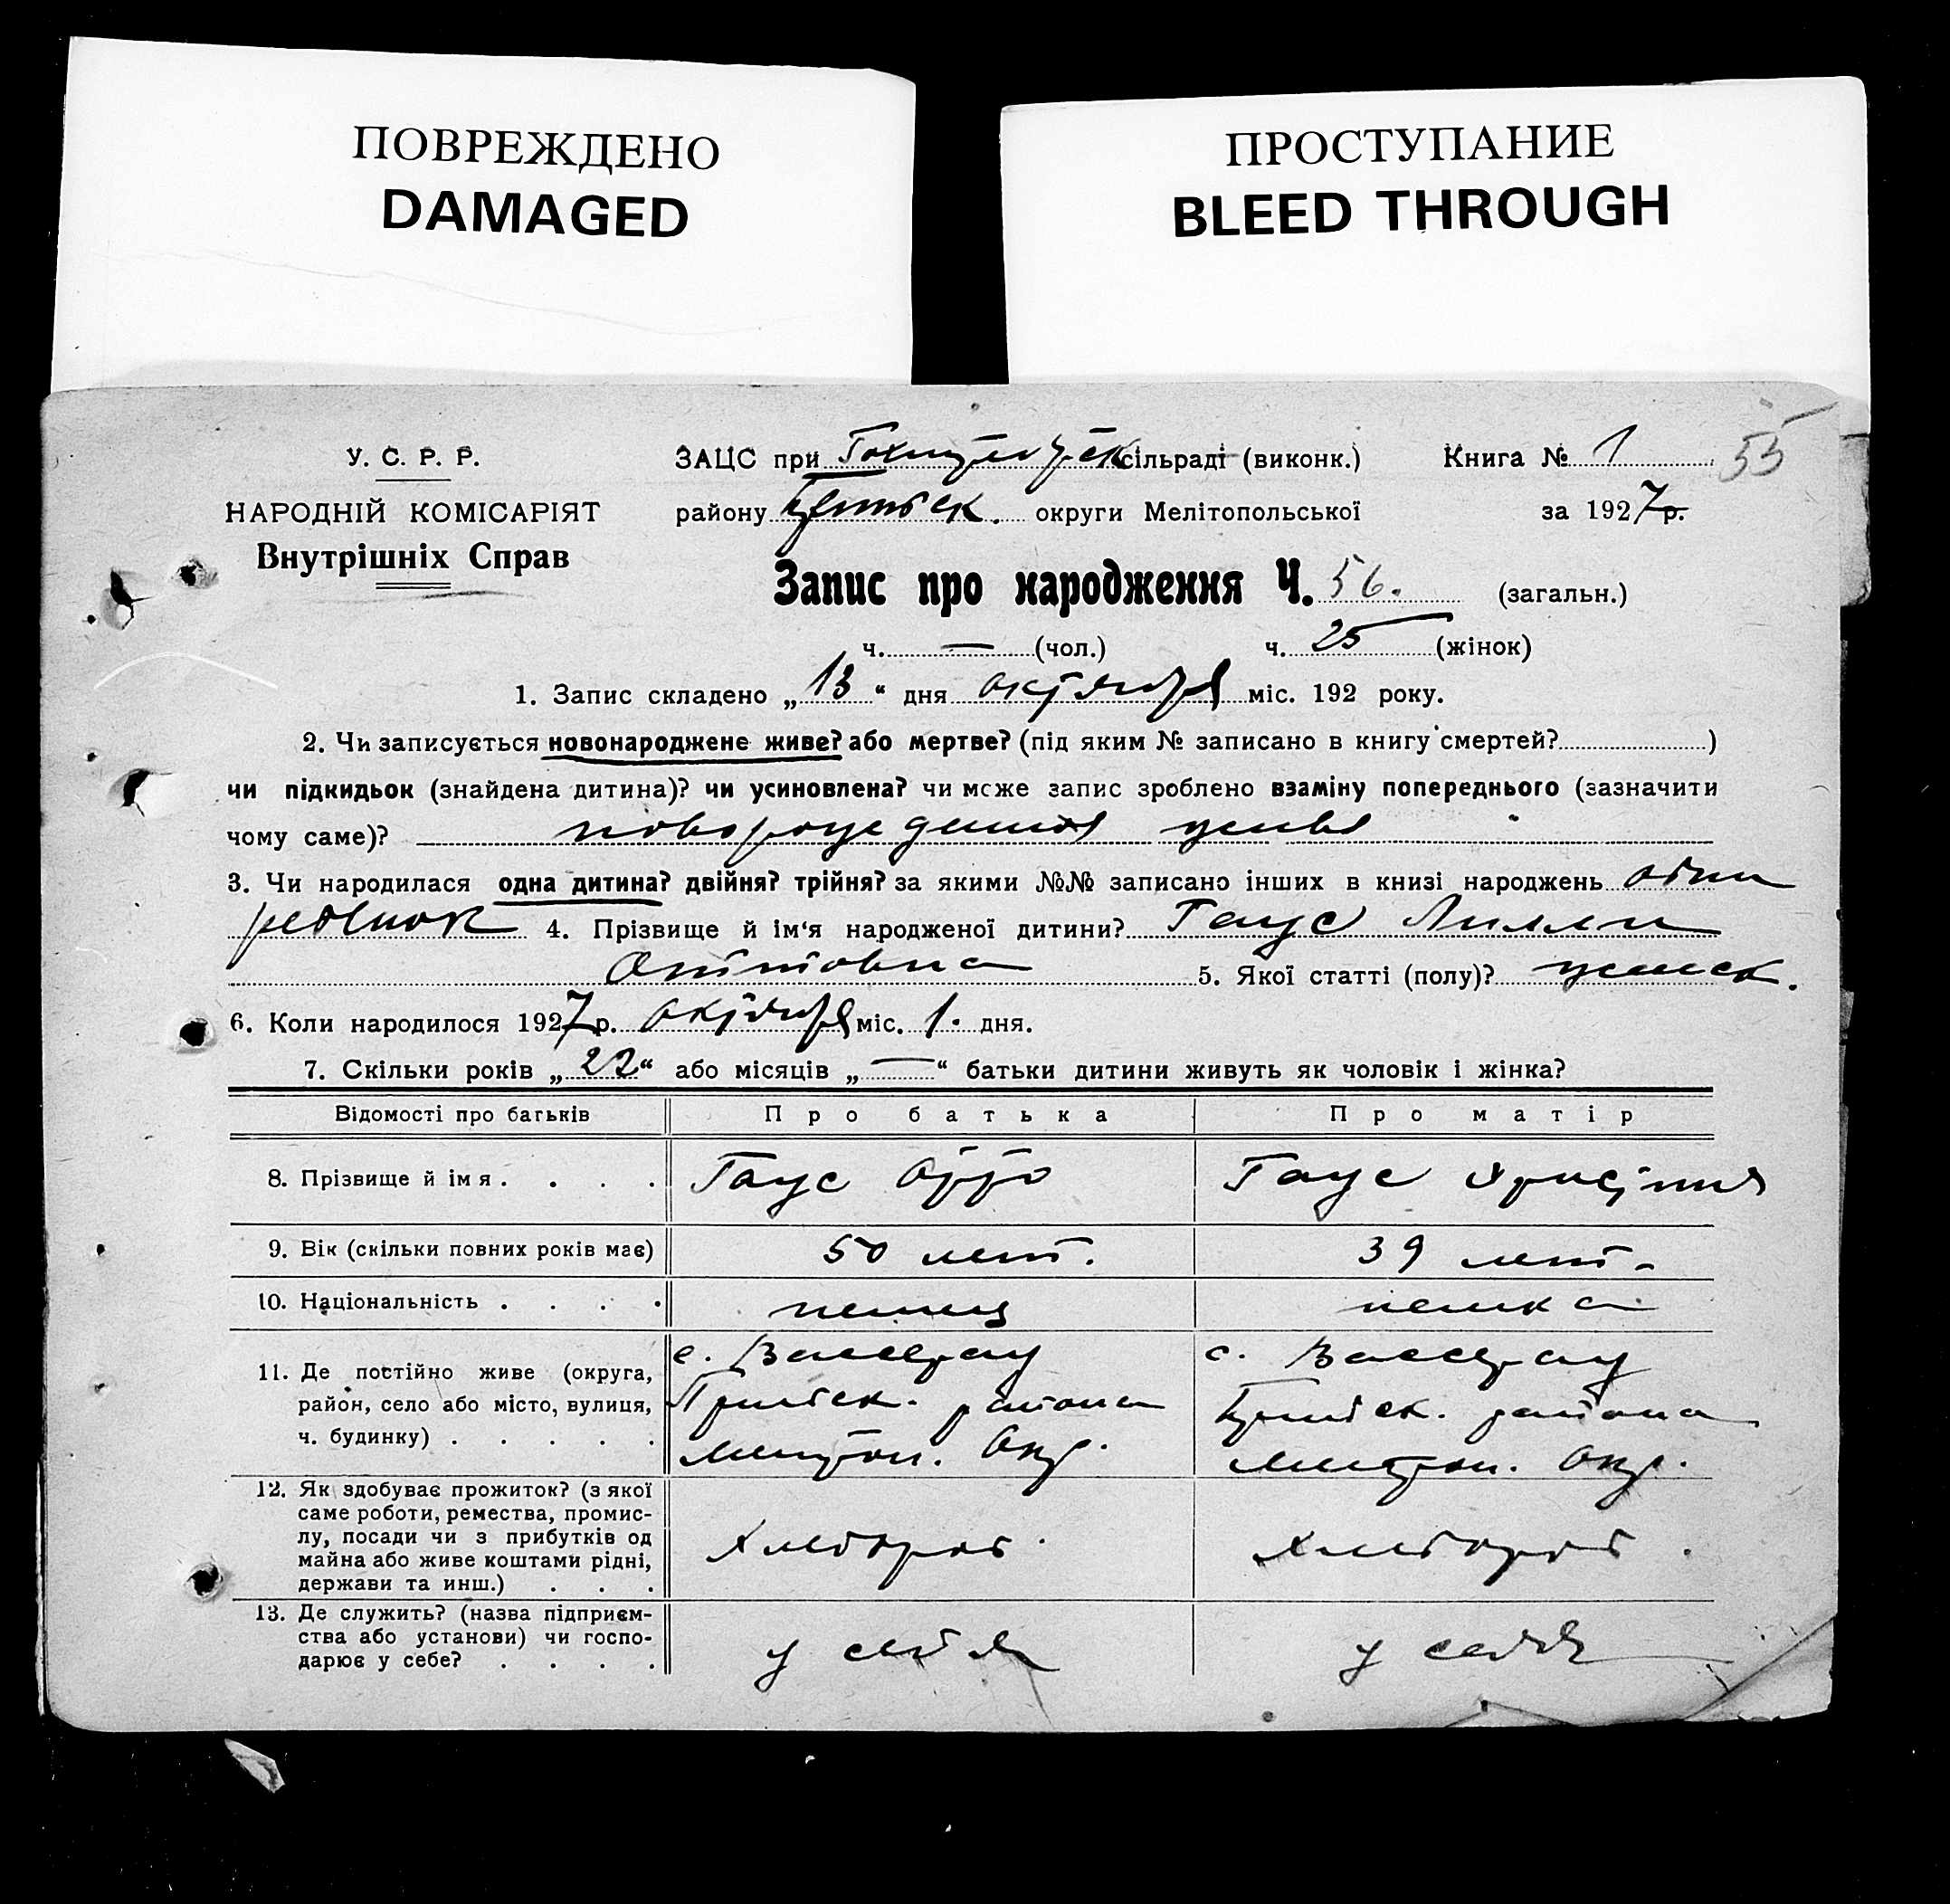 ПОВРЕЖДЕНО
DAMAGED
ПРОСТУПАНИЕ
BLEED THROUGH
У. С. Р. Р.
НАРОДНІЙ КОМІСАРІЯТ
Внутрішніх Справ
ЗАЦС при сільраді (виконк.) Книга № 1 55
району округи Мелітопольської за 1927р.
Запис про народження Ч. 56. (загальн.)
ч. — (чол.) ч. 25 (жінок)
1. Запис складено „13“ дня октября міс. 192 року.
2. Чи записується новонароджене живе? або мертве? (під яким № записано в книгу смертей? )
чи підкидьок (знайдена дитина)? чи усиновлена? чи може запис зроблено взаміну попереднього (зазначити
чому саме)? новорожденная живая
3. Чи народилася одна дитина? двійня? трійня? за якими №№ записано інших в книзі народжень один
ребенок 4. Прізвище й ім‘я народженої дитини? Гаус Лилли
Оттовна 5. Якої статті (полу)? женск.
6. Коли народилося 1927р. октября міс. 1. дня.
7. Скільки років „22“ або місяців „—“ батьки дитини живуть як чоловік і жінка?
Відомості про батьків Про батька Про матір
8. Прізвище й ім я . . . . Гаус Отто Гаус Христина
9. Вік (скільки повних років має) 50 лет. 39 лет.
10. Національність . . . . немец немка
11. Де постійно живе (округа,
район, село або місто, вулиця,
ч. будинку) . . . . .
с. Вассерау
Пришибск. района
Мелитоп. Окр.
с. Вассерау
Пришибск. района
Мелитоп. Окр.
12. Як здобуває прожиток? (з якої
саме роботи, ремества, промис-
лу, посади чи з прибутків од
майна або живе коштами рідні,
держави та инш.) . . .
Хлебороб. Хлебороб.
13. Де служить? (назва підприєм-
ства або установи) чи госпо-
дарює у себе? . . . .
у себя у себя